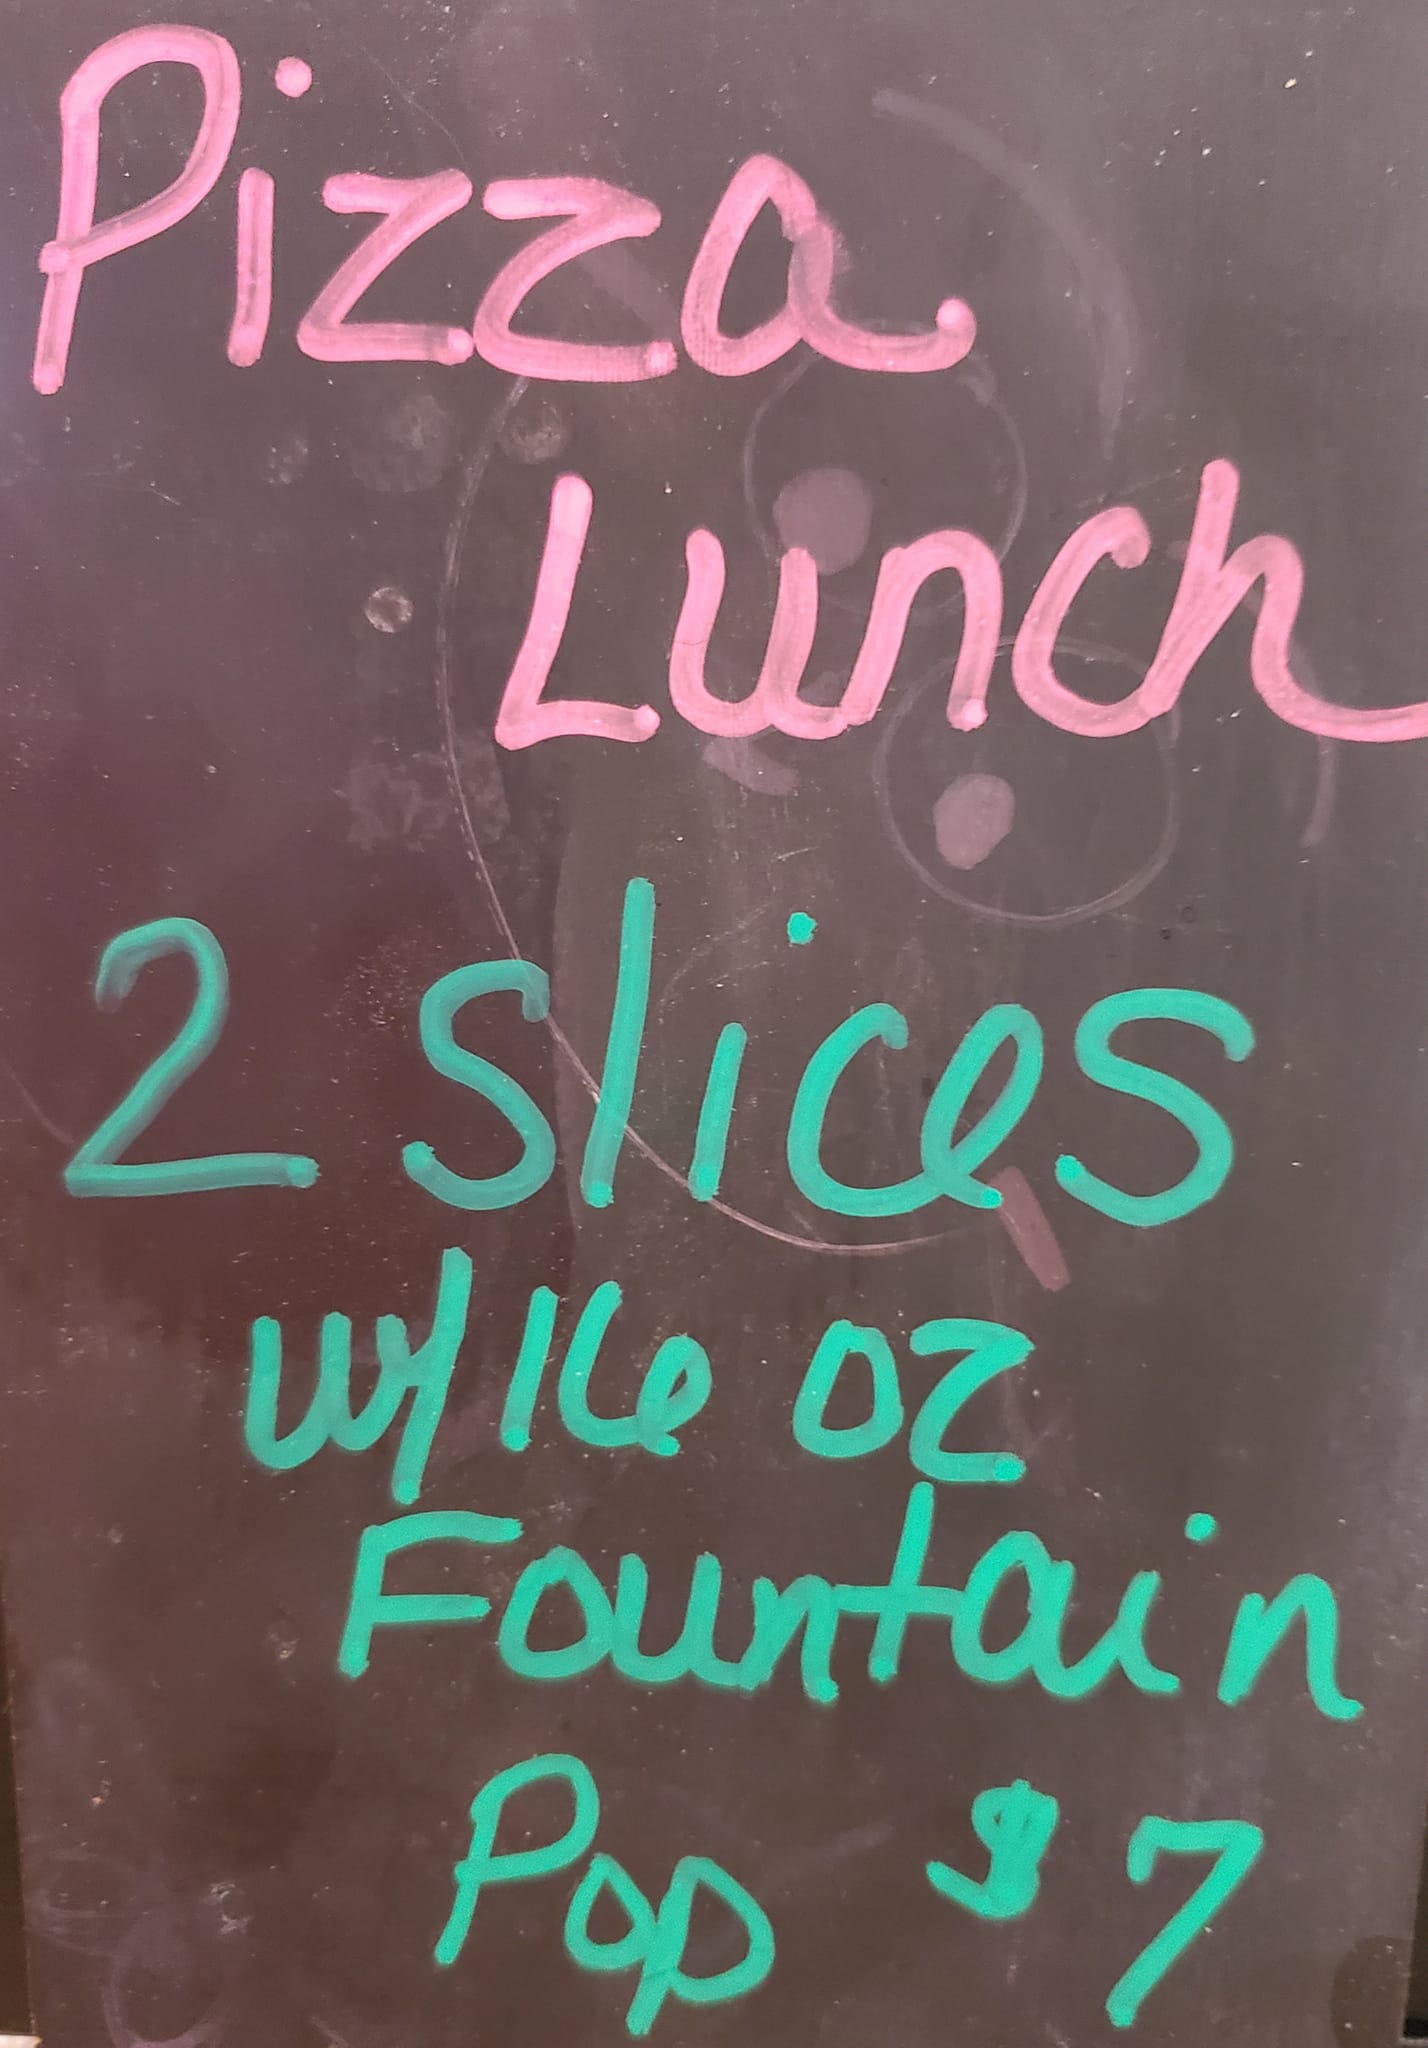 Pizza
Lunch
2 slices
w/16 oz
Fountain
Pop $7